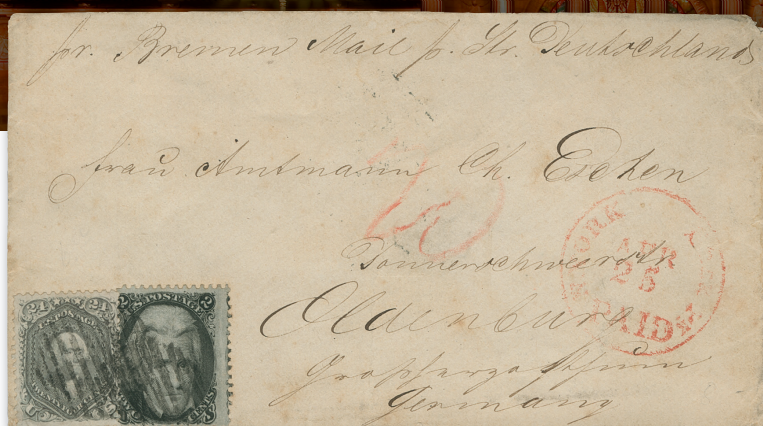 pr. Bremen Mail p. Str. Deutschland
Frau Amtmann Ch. Escken
10
Donnerschweerstr
Oldenburg
Grossherzogthum
Germany
YORK
APR
25
PAID
24 24
U.S. POSTAGE
2 POSTAGE 2
CENTS